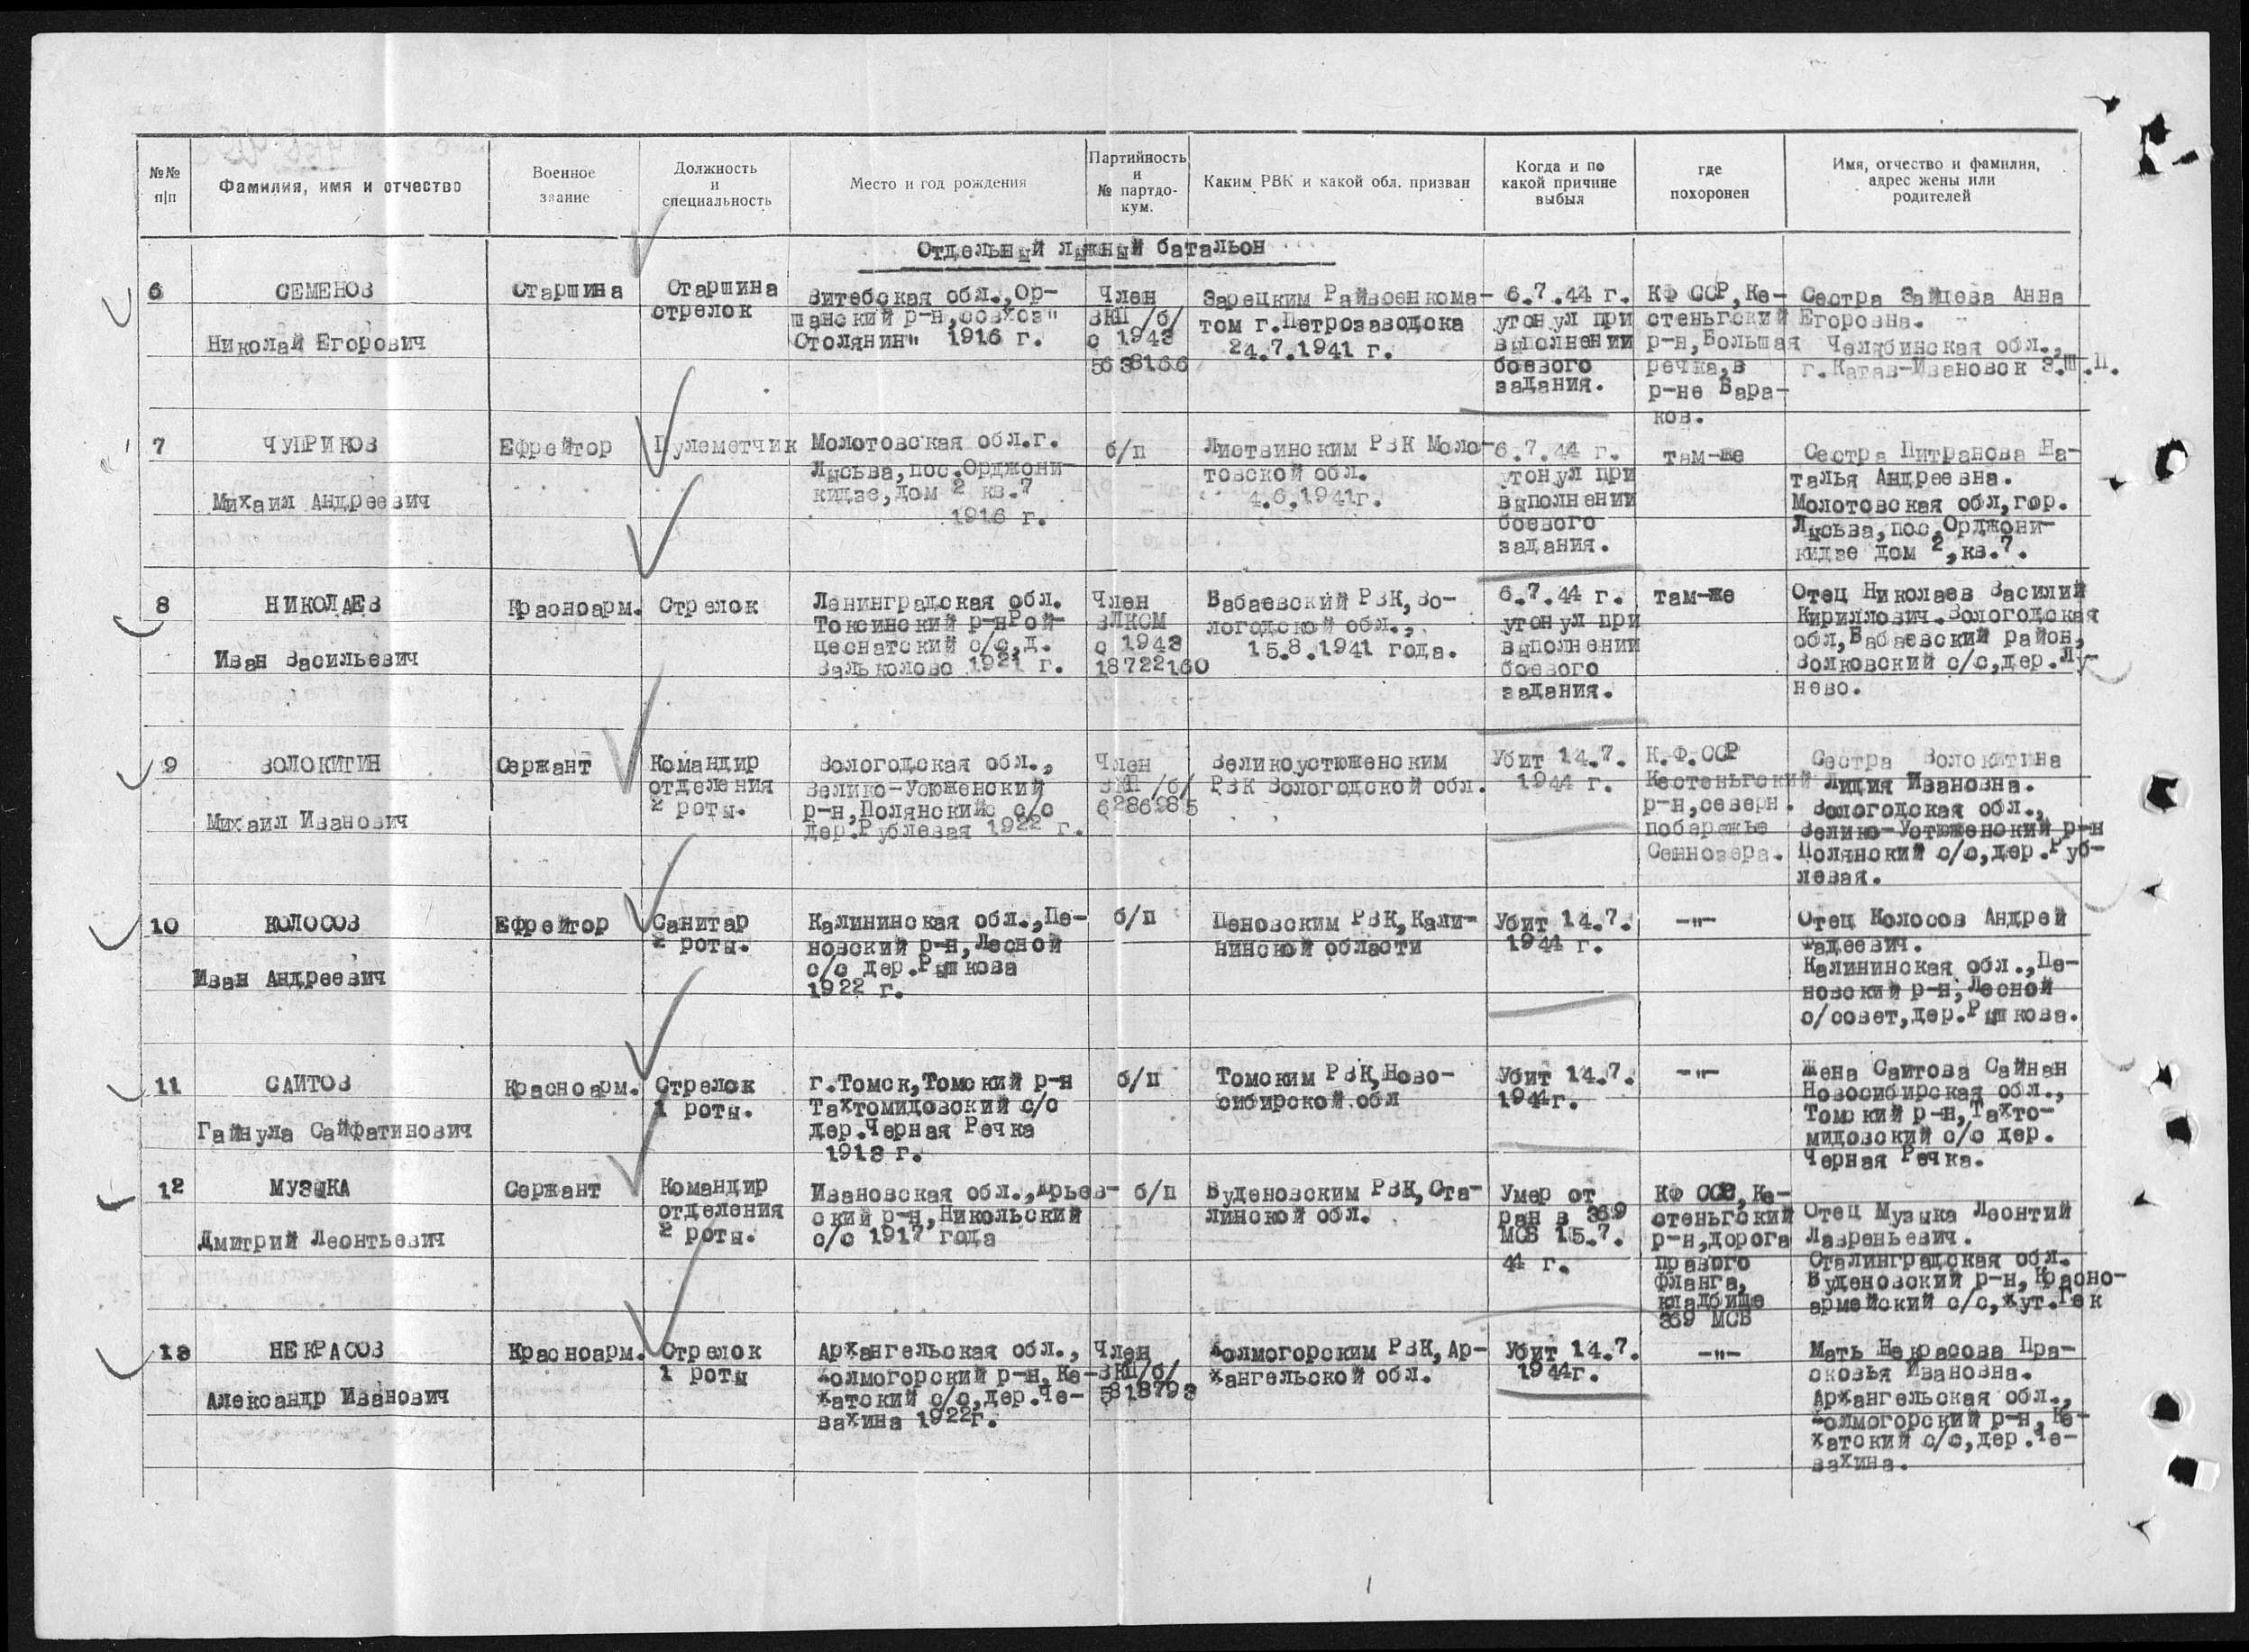 №№ п|п
Фамилия, имя и отчество
Военное звание
Должность и специальность
Место и год рождения
Партийность и № партдокум.
Каким РВК и какой обл. призван
Когда и по какой причине выбыл
где похоронен
Имя, отчество и фамилия, адрес жены или родителей
Отдельный лыжный батальон
6
СЕМЕНОВ
Николай Егорович
Старшина
Старшина
стрелок
Витебская обл.,Ор-
шанский р-н,совхоз"
Столянин" 1916 г.
Член
ВКП/б/
с 1943
5638166
Зарецким Райвоенкома-
том г.Петрозаводска
24.7.1941 г.
6.7.44 г.
утонул при
выполнении
боевого
задания.
КФ ССР,Ке-
стеньгский
р-н,Большая
речка,в
р-не Бара-
ков.
Сестра Зайцева Анна
Егоровна.
Челябинская обл.,
г.Катав-Ивановск З.Ш.П.
7
ЧУПРИКОВ
Михаил Андреевич
Ефрейтор
Пулеметчик
Молотовская обл.г.
Лысьва,пос.Орджони-
кидзе,дом 2 кв.7
1916 г.
б/п
Листвинским РВК Моло-
товской обл.
4.6.1941г.
6.7.44 г.
утонул при
выполнении
боевого
задания.
там-же
Сестра Питранова На-
талья Андреевна.
Молотовская обл,гор.
Лысьва,пос.Орджони-
кидзе дом 2,кв.7.
8
НИКОЛАЕВ
Иван Васильевич
Красноарм.
Стрелок
Ленинградская обл.
Токсинский р-нРой-
цеснатский с/с,д.
Вальколово 1921 г.
Член
ВЛКСМ
с 1943
18722160
Бабаевский РВК,Во-
логодской обл.,
15.8.1941 года.
6.7.44 г.
утонул при
выполнении
боевого
задания.
там-же
Отец Николаев Василий
Кириллович.Вологодская
обл,Бабаевский район,
Волковский с/с,дер.Лу-
нево.
9
ВОЛОКИТИН
Михаил Иванович
Сержант
Командир
отделения
2 роты.
Вологодская обл.,
Велико-Усюженский
р-н,Полянскийс с/с
дер.Рублевая 1922 г.
Член
ВКП/б/
6286285
Великоустюженским
РВК Вологодской обл.
Убит 14.7.
1944 г.
К.Ф.ССР
Кестеньгский
р-н,северн.
побережье
Сеннозера.
Сестра Волокитина
Лидия Ивановна.
Вологодская обл.,
Велико-Устюженский р-н
Полянский с/с,дер.Руб-
левая.
10
КОЛОСОВ
Иван Андреевич
Ефрейтор
Санитар
2 роты.
Калининская обл.,Пе-
новский р-н,Лесной
с/с дер.Рышкова
1922 г.
б/п
Пеновским РВК,Кали-
нинской области
Убит 14.7.
1944 г.
-"-
Отец Колосов Андрей
Фадеевич.
Калининская обл.,Пе-
новский р-н,Лесной
с/совет,дер.Рышкова.
11
САИТОВ
Гайнула Сайфатинович
Красноарм.
Стрелок
1 роты.
г.Томск,Томский р-н
Тахтомидовский с/с
дер.Черная Речка
1913 г.
б/п
Томским РВК,Ново-
сибирской.обл
Убит 14.7.
1944г.
-"-
Жена Саитова Сайнан
Новосибирская обл.,
Томский р-н,Тахто-
мидовский с/с дер.
Черная Речка.
12
МУЗЫКА
Дмитрий Леонтьевич
Сержант
Командир
отделения
2 роты.
Ивановская обл.,Юрьев-
ский р-н,Никольский
с/с 1917 года
б/п
Буденовским РВК,Ста-
линской обл.
Умер от
ран в 369
МСБ 15.7.
44 г.
КФ ССР,Ке-
стеньгский
р-н,дорога
правого
фланга,
кладбище
369 МСБ
Отец Музыка Леонтий
Лавреньевич.
Сталинградская обл.
Буденовский р-н,Красно-
армейский с/с,хут.Гек
13
НЕКРАСОВ
Александр Иванович
Красноарм.
Стрелок
1 роты
Архангельская обл.,
Холмогорский р-н,Ке-
хатский с/с,дер.Че-
вахина 1922г.
Член
ВКП/б/
5818793
Холмогорским РВК,Ар-
хангельской обл.
Убит 14.7.
1944г.
-"-
Мать Некрасова Пра-
сковья Ивановна.
Архангельская обл.,
Холмогорский р-н,Ке-
хатский с/с,дер.Че-
вахина.